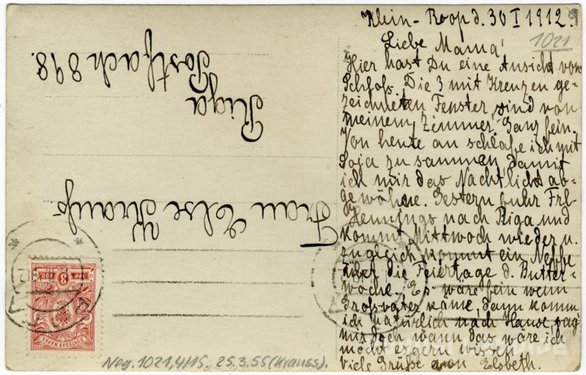 Klein-Roop d. 30 I 1912.
1021
Liebe Mama!
Hier hast Du eine Ansicht vom
Schloß. Die 3 mit Kreuzen ge-
zeichneten Fenster sind von
meinem Zimmer. Ganz fein.
Von heute an schlafe ich mit
zusammen damit
ich mir das Nachtlicht ab-
gewöhne. Gestern fuhr Frl.
nach Riga und
kommt Mittwoch wieder u.
zugleich kommt ein Neffe
über die Feiertage d. Butter-
woche. Es wäre fein wenn
Großvater käme, dann komm
ich natürlich nach Hause, sag
mir doch wann das wäre ich
möcht es gern wissen.
viele Grüße von Elsbeth.
Frau Else Krauss
Riga
Postfach 898.
Neg. 1021,4/15. 25.3.55 (Krauss).